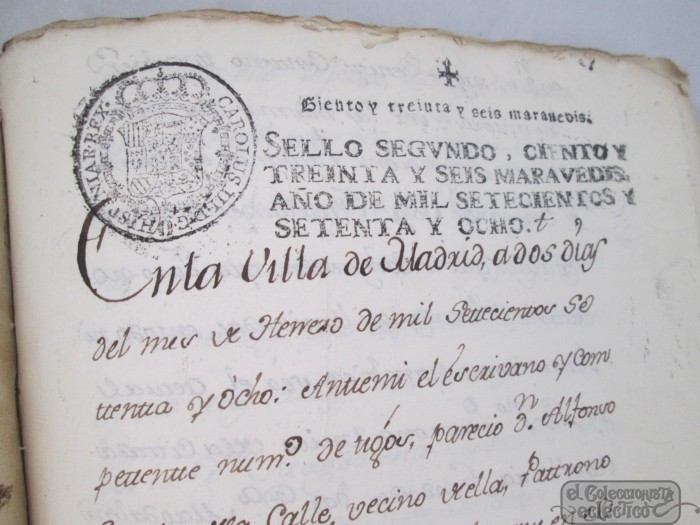 CAROLUS III D G HISPANIAR REX
Siento y treinta y seis maravedis.
SELLO SEGVNDO, CIENTO Y
TREINTA Y SEIS MARAVEDIS,
AÑO DE MIL SETECIENTOS Y
SETENTA Y OCHO.
En la Villa de Madrid, a dos dias
del mes de Henero de mil Settecientos Se
tenta y ocho: Antemi el escrivano y com
petente num.o de tigos, parecio D.n Alfonso
Calle, vecino de ella, Pattrono
el Coleccionista
ecléctico